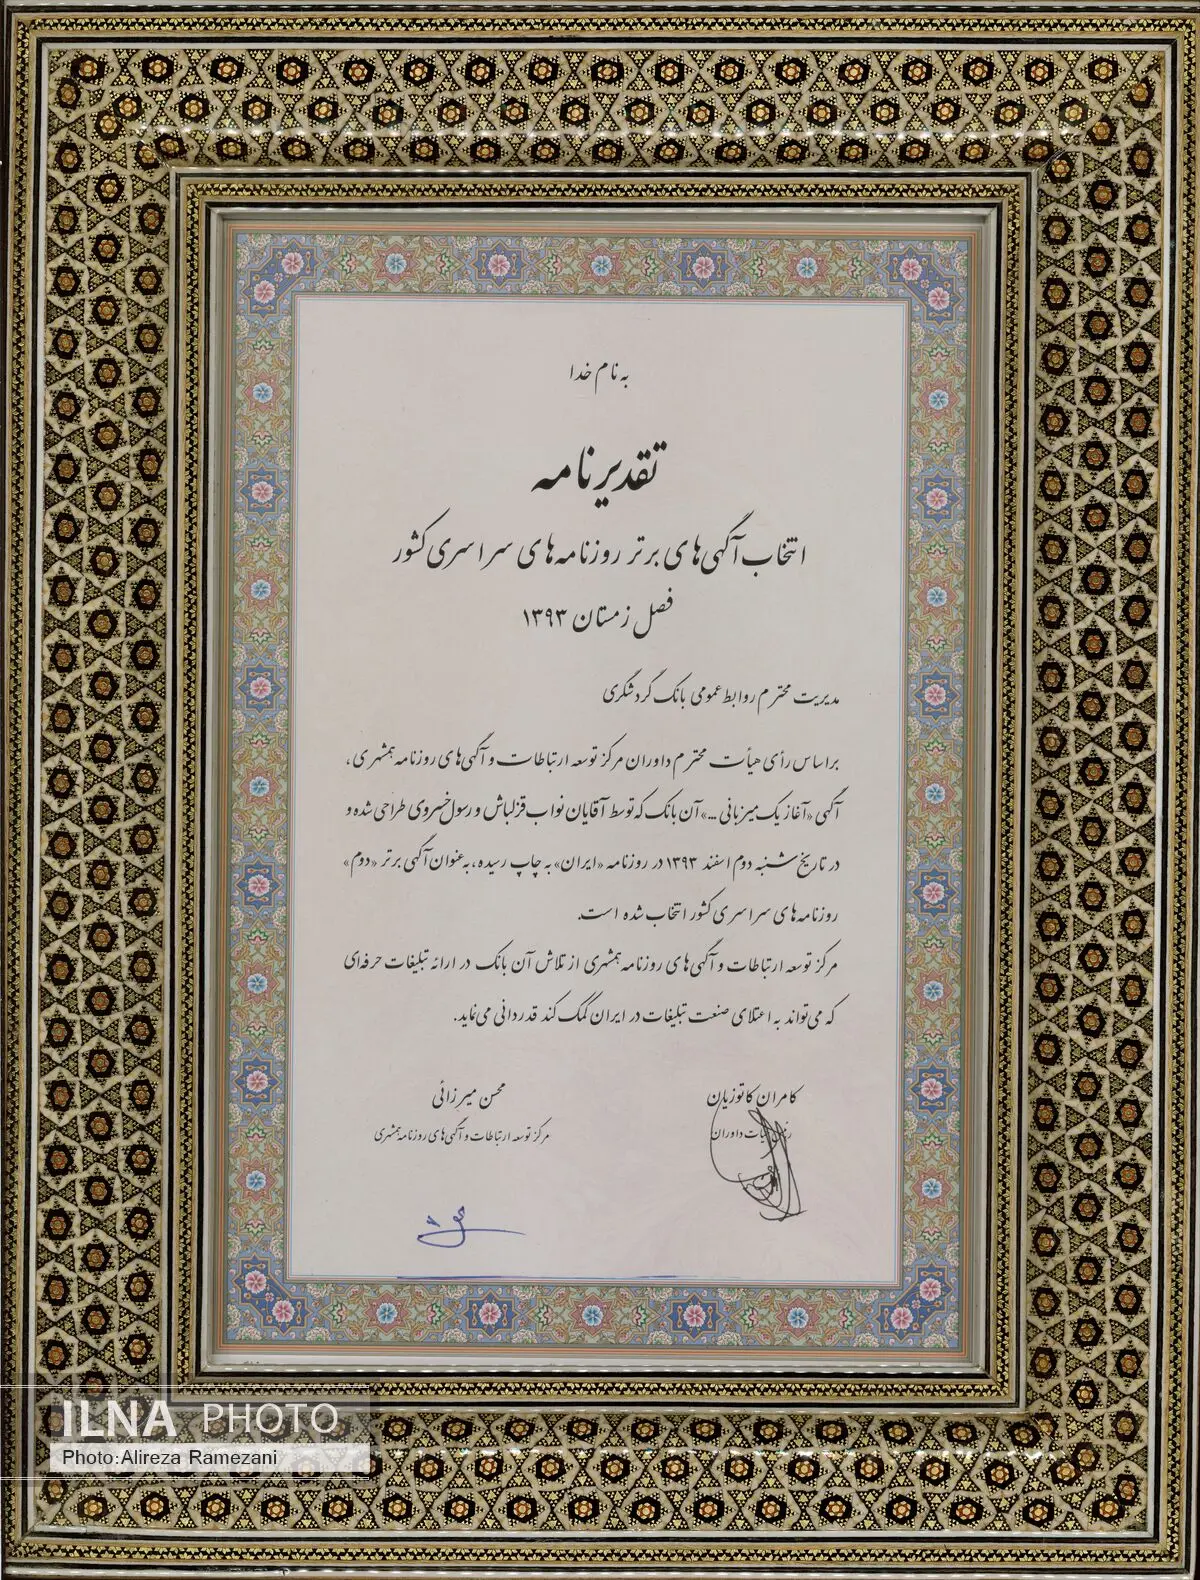 به نام خدا
تقدیرنامه
انتخاب آگهی‌های برتر روزنامه‌های سراسری کشور
فصل زمستان ۱۳۹۳
مدیریت محترم روابط عمومی بانک گردشگری
براساس رأی هیأت محترم داوران مرکز توسعه ارتباطات و آگهی‌های روزنامه همشهری،
آگهی «آغاز یک میزبانی ...» آن بانک که توسط آقایان نواب قزلباش و رسول خسروی طراحی شده و
در تاریخ شنبه دوم اسفند ۱۳۹۳ در روزنامه «ایران» به چاپ رسیده، به عنوان آگهی برتر «دوم»
روزنامه‌های سراسری کشور انتخاب شده است.
مرکز توسعه ارتباطات و آگهی‌های روزنامه همشهری از تلاش آن بانک در ارائه تبلیغات حرفه‌ای
که می‌تواند به اعتلای صنعت تبلیغات در ایران کمک کند قدردانی می‌نماید.
کامران کاتوزیان
رئیس هیأت داوران
محسن میرزائی
مرکز توسعه ارتباطات و آگهی‌های روزنامه همشهری
ILNA PHOTO
Photo:Alireza Ramezani